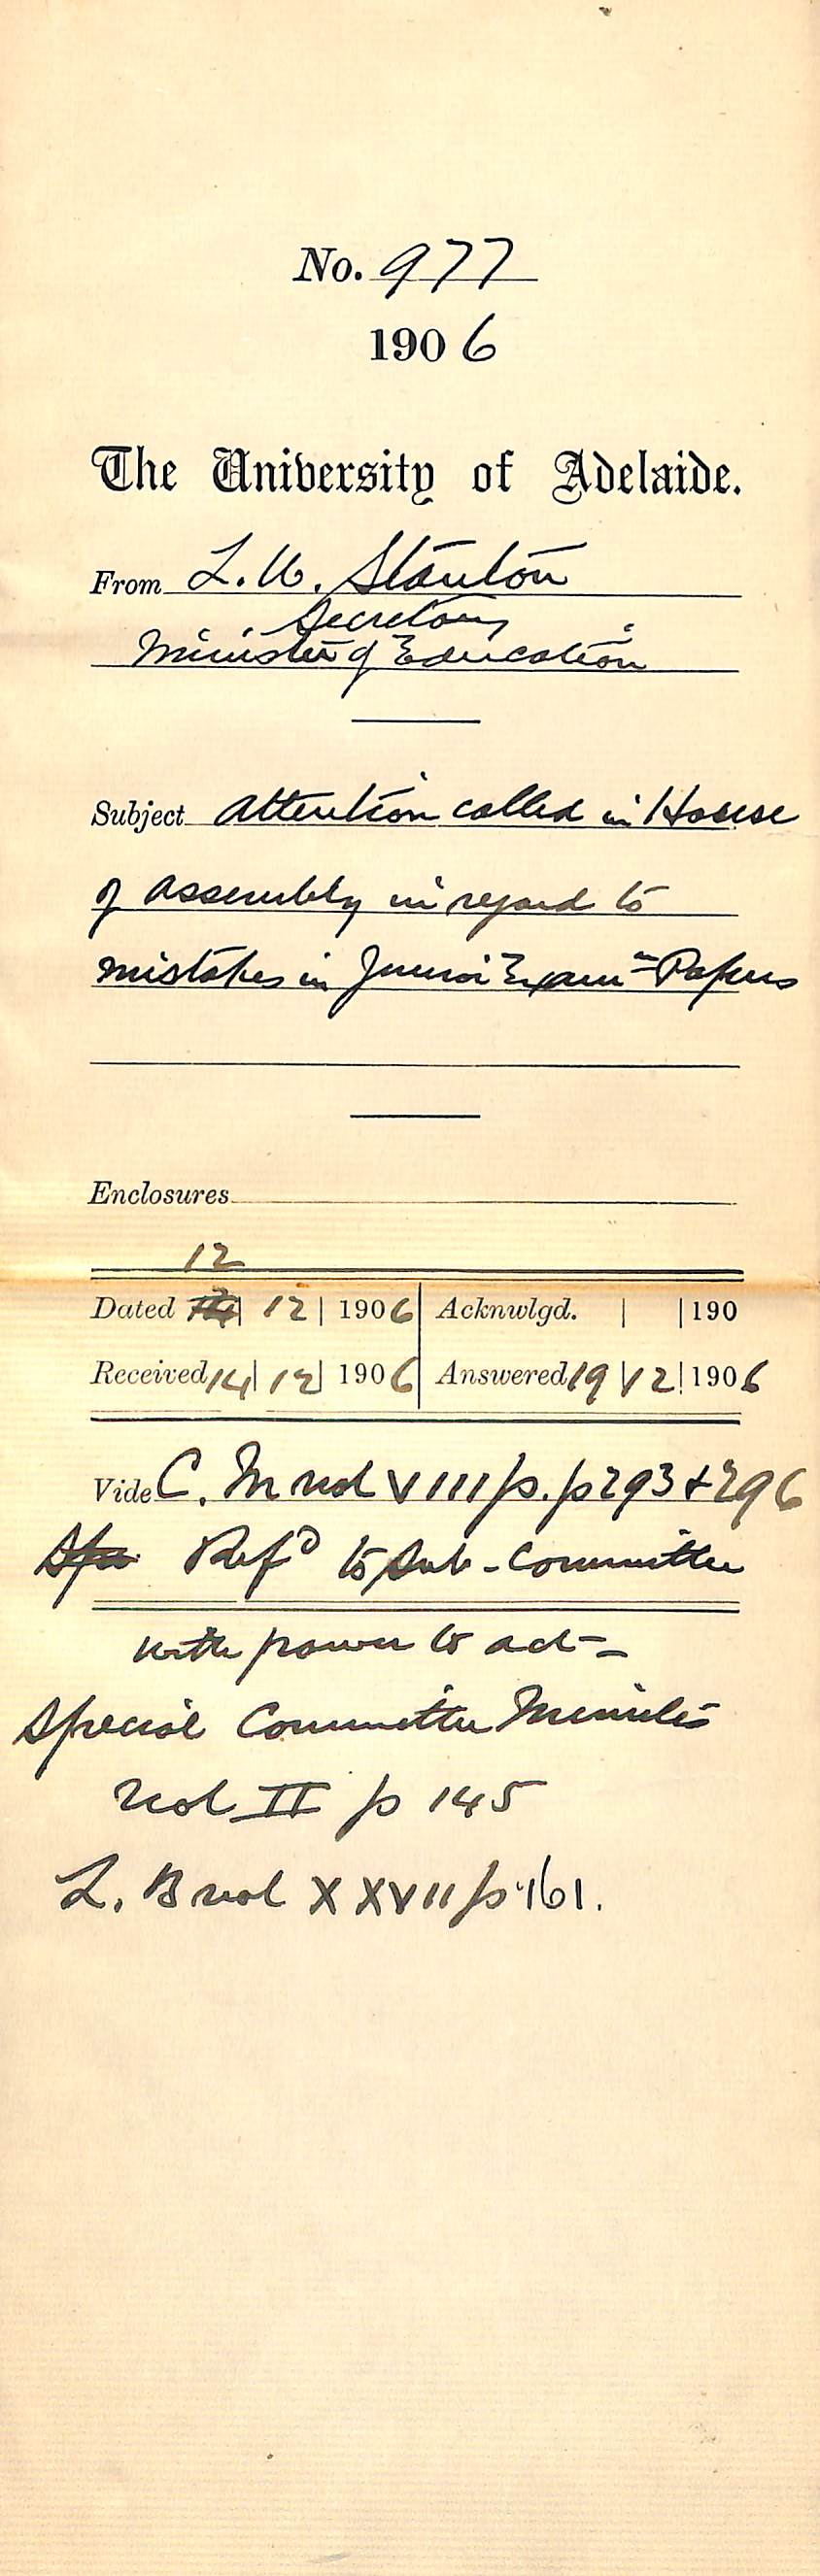 No. 977
1906
The University of Adelaide.
From L. W. Stanton
Secretary
Minister of Education
Subject Attention called in House
of Assembly in regard to
mistakes in Junior Exam​n Papers
Enclosures
12
Dated 12 | 1906 Acknwlgd. | | 190
Received 14 | 12 | 1906 Answered 19 | 12 | 1906
Vide C. M vol VIII p.p 293 & 296
Refd to Sub-Committee
with power to act -
Special Committee Minutes
Vol II p 145
L. B vol XXVII p 161.